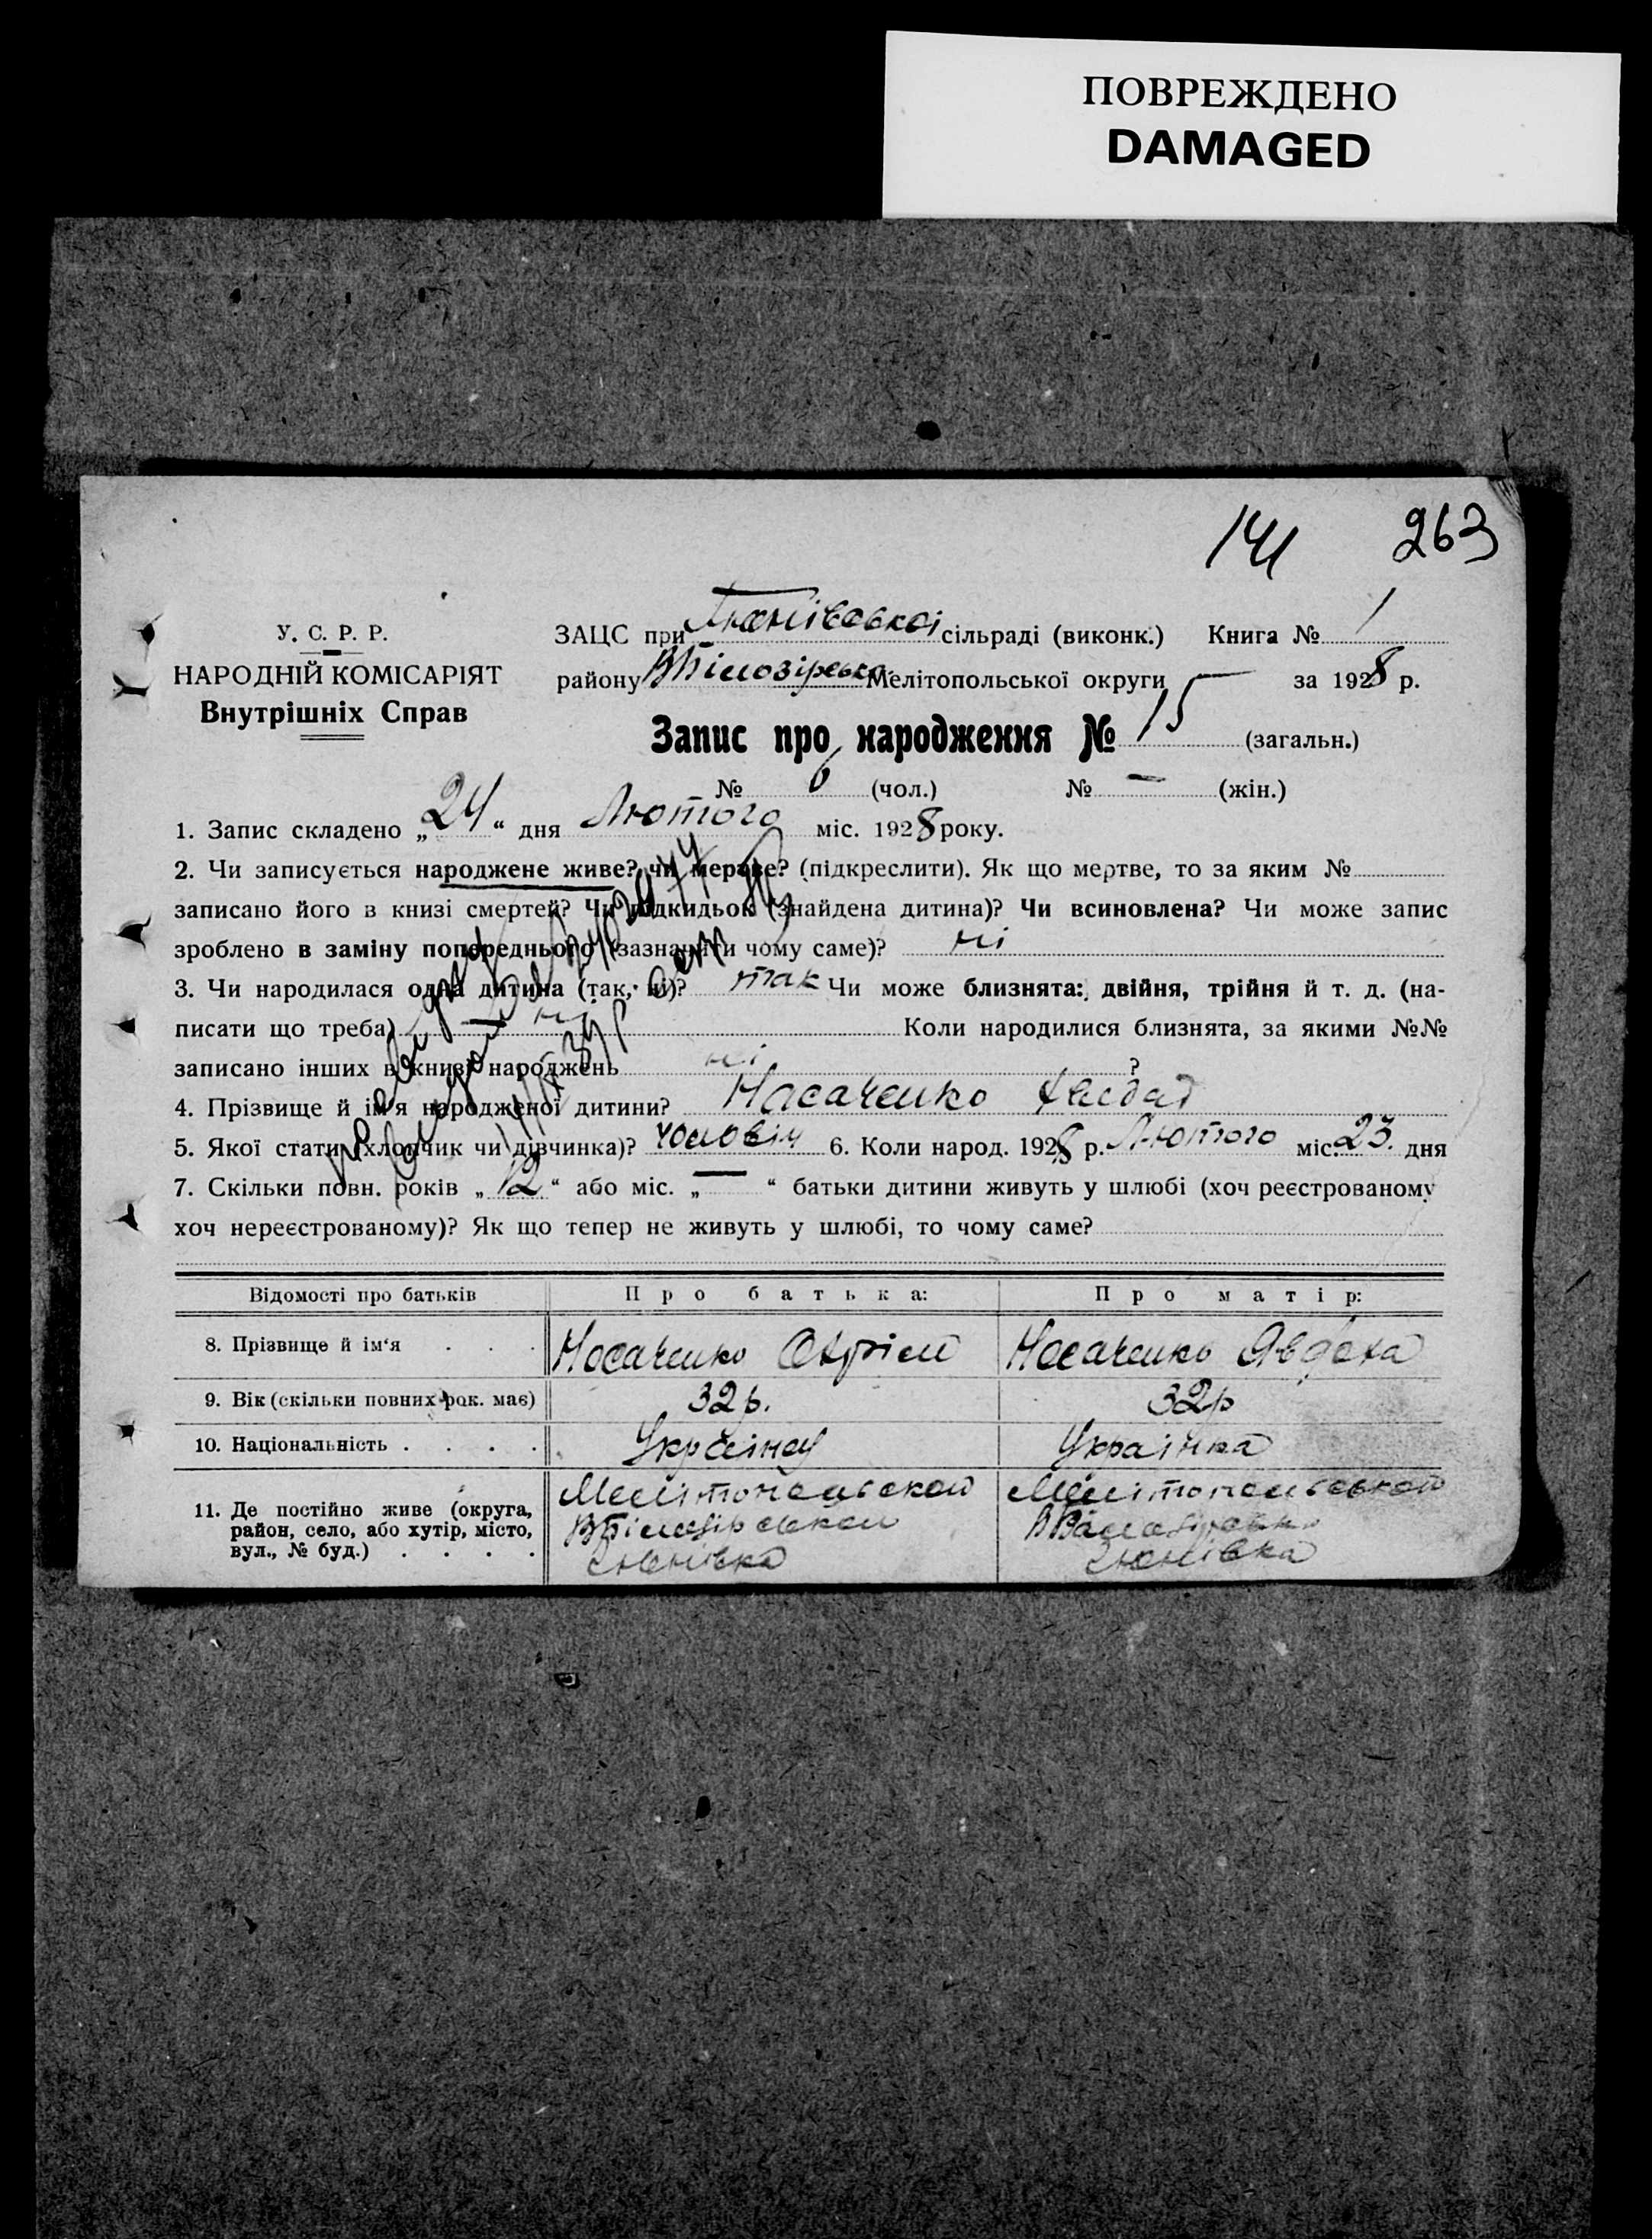 ПОВРЕЖДЕНО
DAMAGED
141 263
У. С. Р. Р.
НАРОДНІЙ КОМІСАРІЯТ
Внутрішніх Справ
ЗАЦС при сільраді (виконк.) Книга № 1
району Мелітопольської округи за 1928 р.
Запис про народження № 15 (загальн.)
№ 6 (чол.) № — (жін.)
1. Запис складено „24“ дня Лютого міс. 1928 року.
2. Чи записується народжене живе? чи мертве? (підкреслити). Як що мертве, то за яким №
записано його в книзі смертей? Чи підкидьок (знайдена дитина)? Чи всиновлена? Чи може запис
зроблено в заміну попереднього (зазначити чому саме)? ні
3. Чи народилася одна дитина (так, ні)? так Чи може близнята: двійня, трійня й т. д. (на-
писати що треба) ні Коли народилися близнята, за якими №№
записано інших в книзі народжень ні ?
4. Прізвище й ім'я народженої дитини? Носаченко
5. Якої стати (хлопчик чи дівчинка)? 6. Коли народ. 1928 р. Лютого міс. 23. дня
7. Скільки повн. років „12“ або міс. „—“ батьки дитини живуть у шлюбі (хоч реєстрованому
хоч нереєстрованому)? Як що тепер не живуть у шлюбі, то чому саме?
Відомості про батьків Про батька: Про матір:
8. Прізвище й ім‘я . . . Носаченко Охрім Носаченко Явдоха
9. Вік (скільки повних рок. має) 32 р. 32 р
10. Національність . . . . Українец Українка
11. Де постійно живе (округа,
район, село, або хутір, місто,
вул., № буд.) . . . .